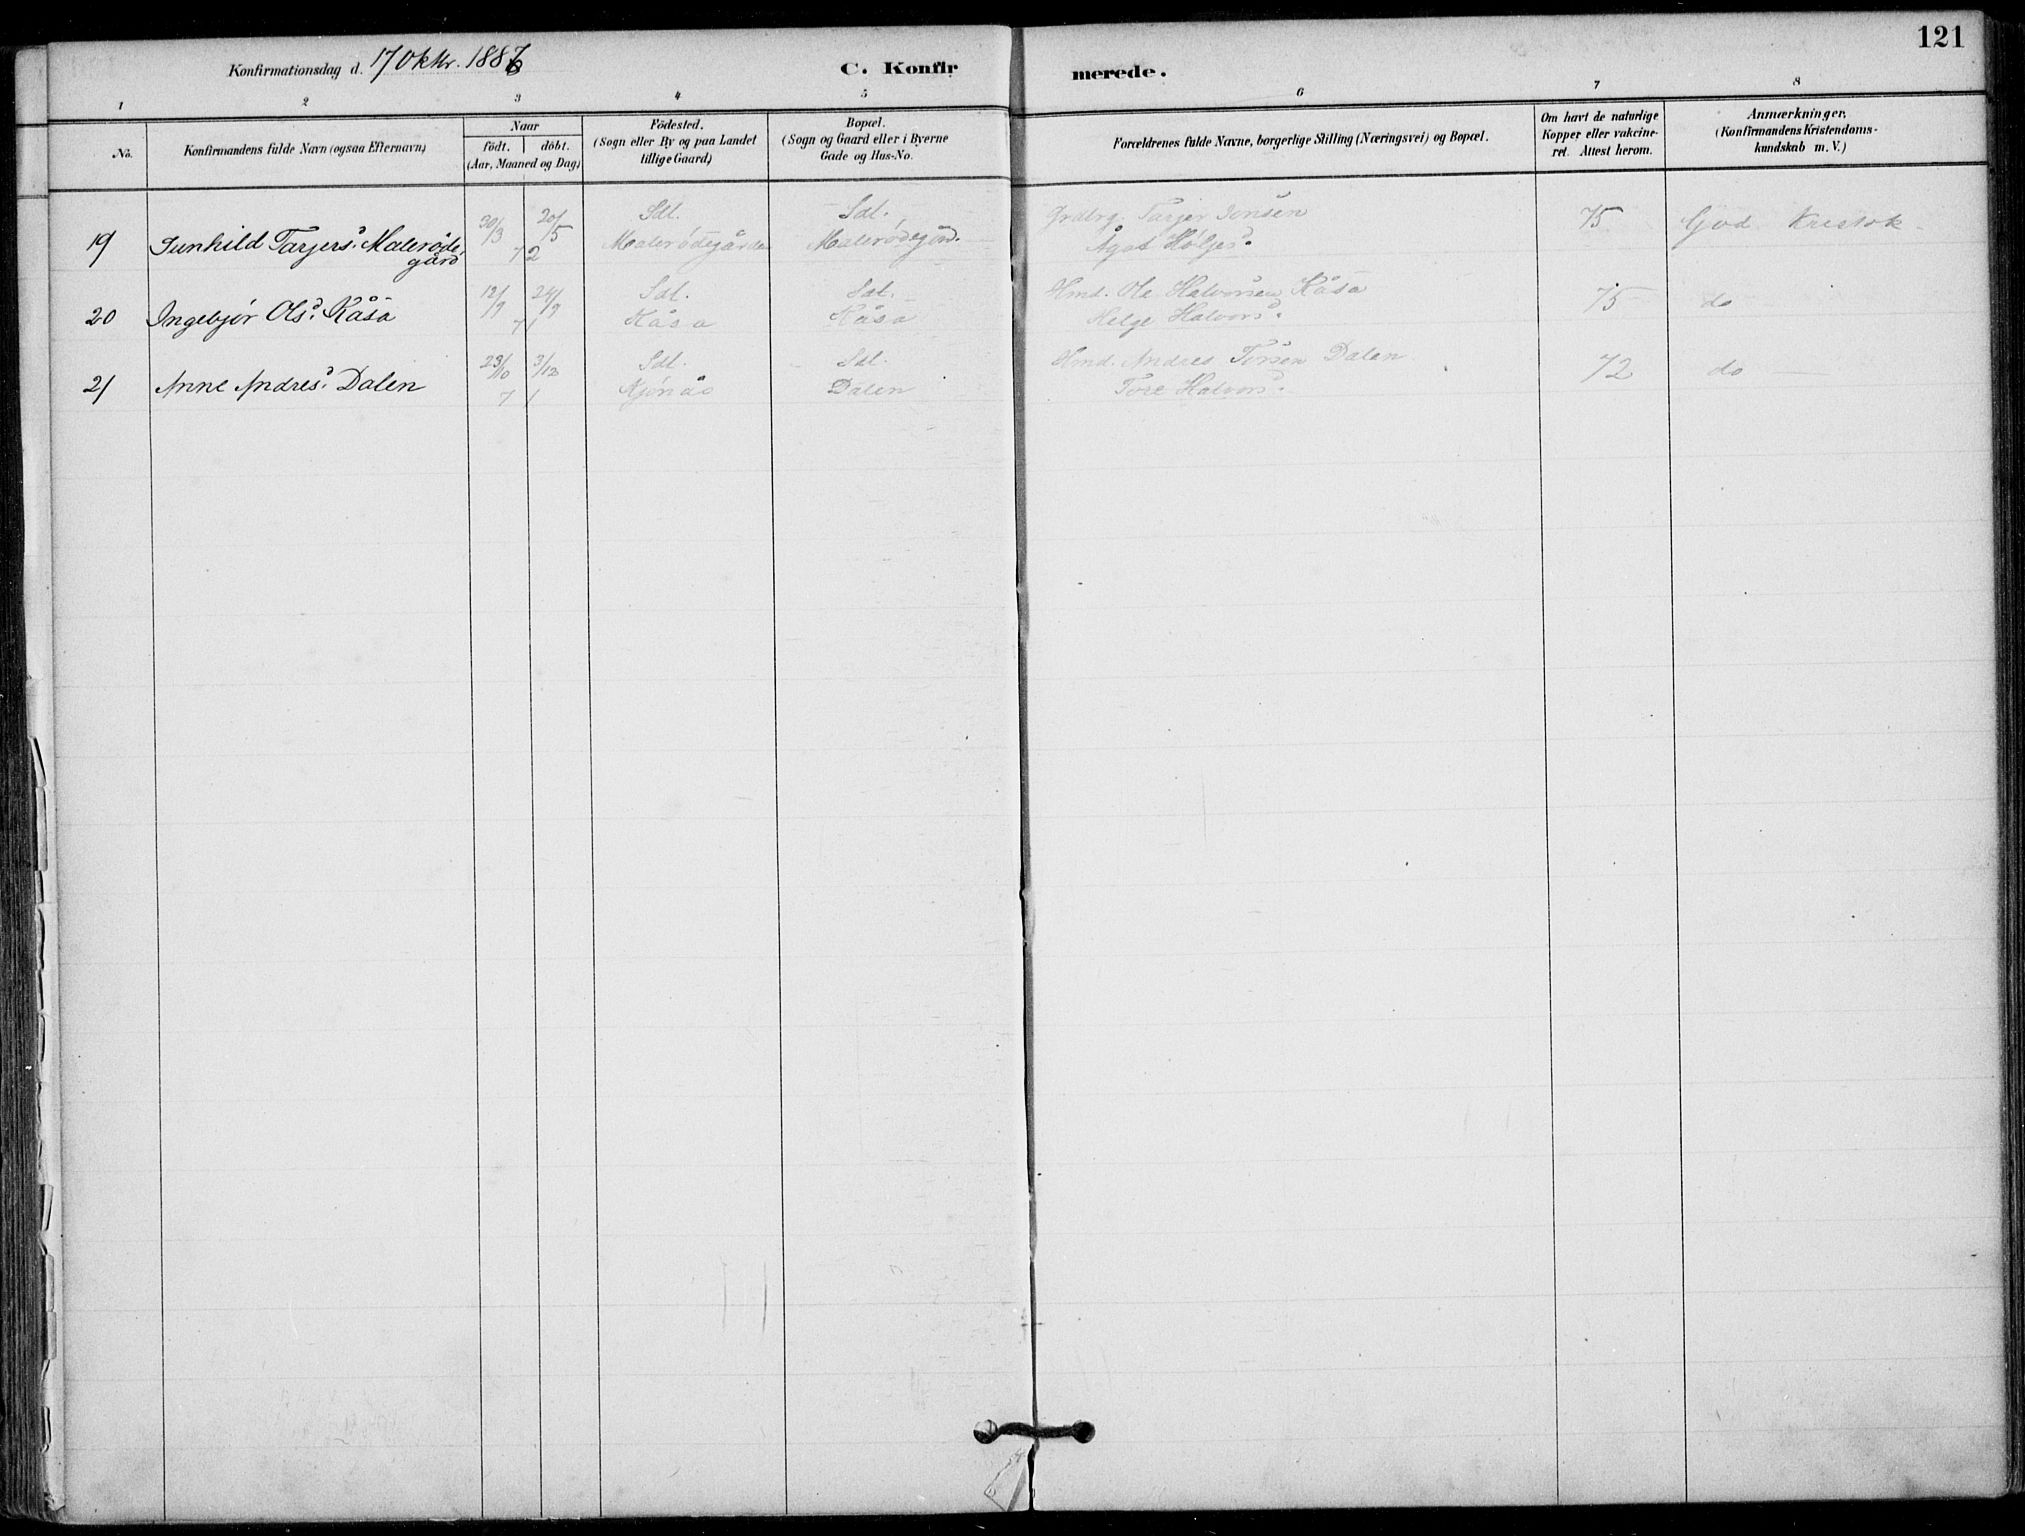 121
Konfirmationsdag d. 17 Oktbr. 1886
C. Konfirmerede.
1 2 3 4 5 6 7 8
No.
Konfirmandens fulde Navn (ogsaa Efternavn)
Naar
födt. döbt.
(Aar, Maaned og Dag)
Födested.
(Sogn eller By og paa Landet
tillige Gaard)
Bopæl.
(Sogn og Gaard eller i Byerne
Gade og Hus-No.
Forældrenes fulde Navne, borgerlige Stilling (Næringsvei) og Bopæl.
Om havt de naturlige
Kopper eller vakcine-
ret. Attest herom.
Anmærkninger,
(Konfirmandens Kristendoms-
kundskab m. V.)
19 Gunhild Tarjersd. Malerödegård 30/3 20/5 72 Sdl. Malerödegården Sdl. Malerödegård. Grdbrg. Tarjer Jonsen 75 God Kristdk.
Ågot Holjesd.
20 Ingebjör Olsd. Kåsa 12/9 24/9 71 Sdl. Kåsa Sdl. Kåsa Hmd. Ole Halvorsen Kåsa 75 do
Helge Halvorsd.
21 Anne Andresd. Dalen 23/10 3/12 71 Sdl. Kjönås Sdl. Dalen Hmd. Andres Torsen Dalen 72 do
Tore Halvorsd.